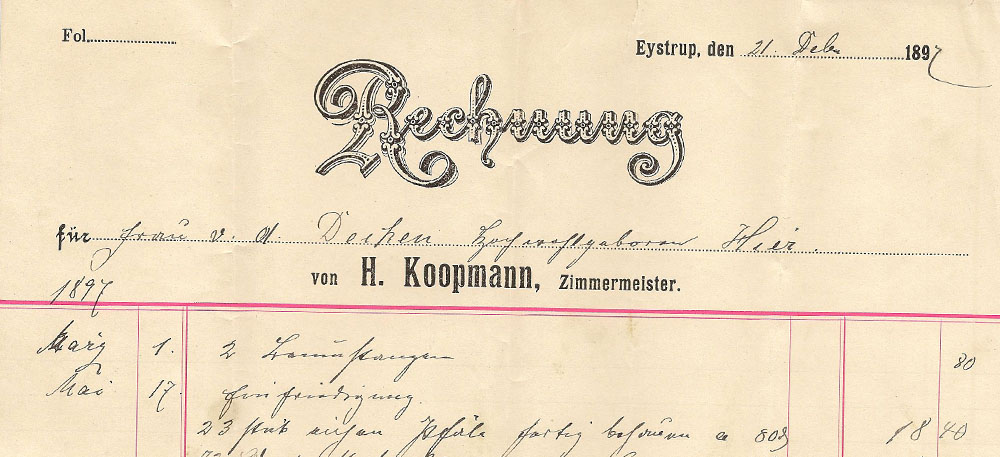 Fol.
Eystrup, den 21. Debr 1897
Rechnung
für Frau v. d. Decken Hochwohlgeboren Hier.
von H. Koopmann, Zimmermeister.
1897
März 1. 2 80
Mai 17. Einfriedigung.
23 stük eichen Pfäle fertig behauen a 80₰ 18 40